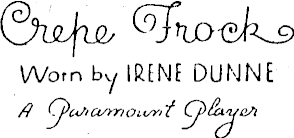 Crepe Frock
Worn by IRENE DUNNE
A Paramount Player